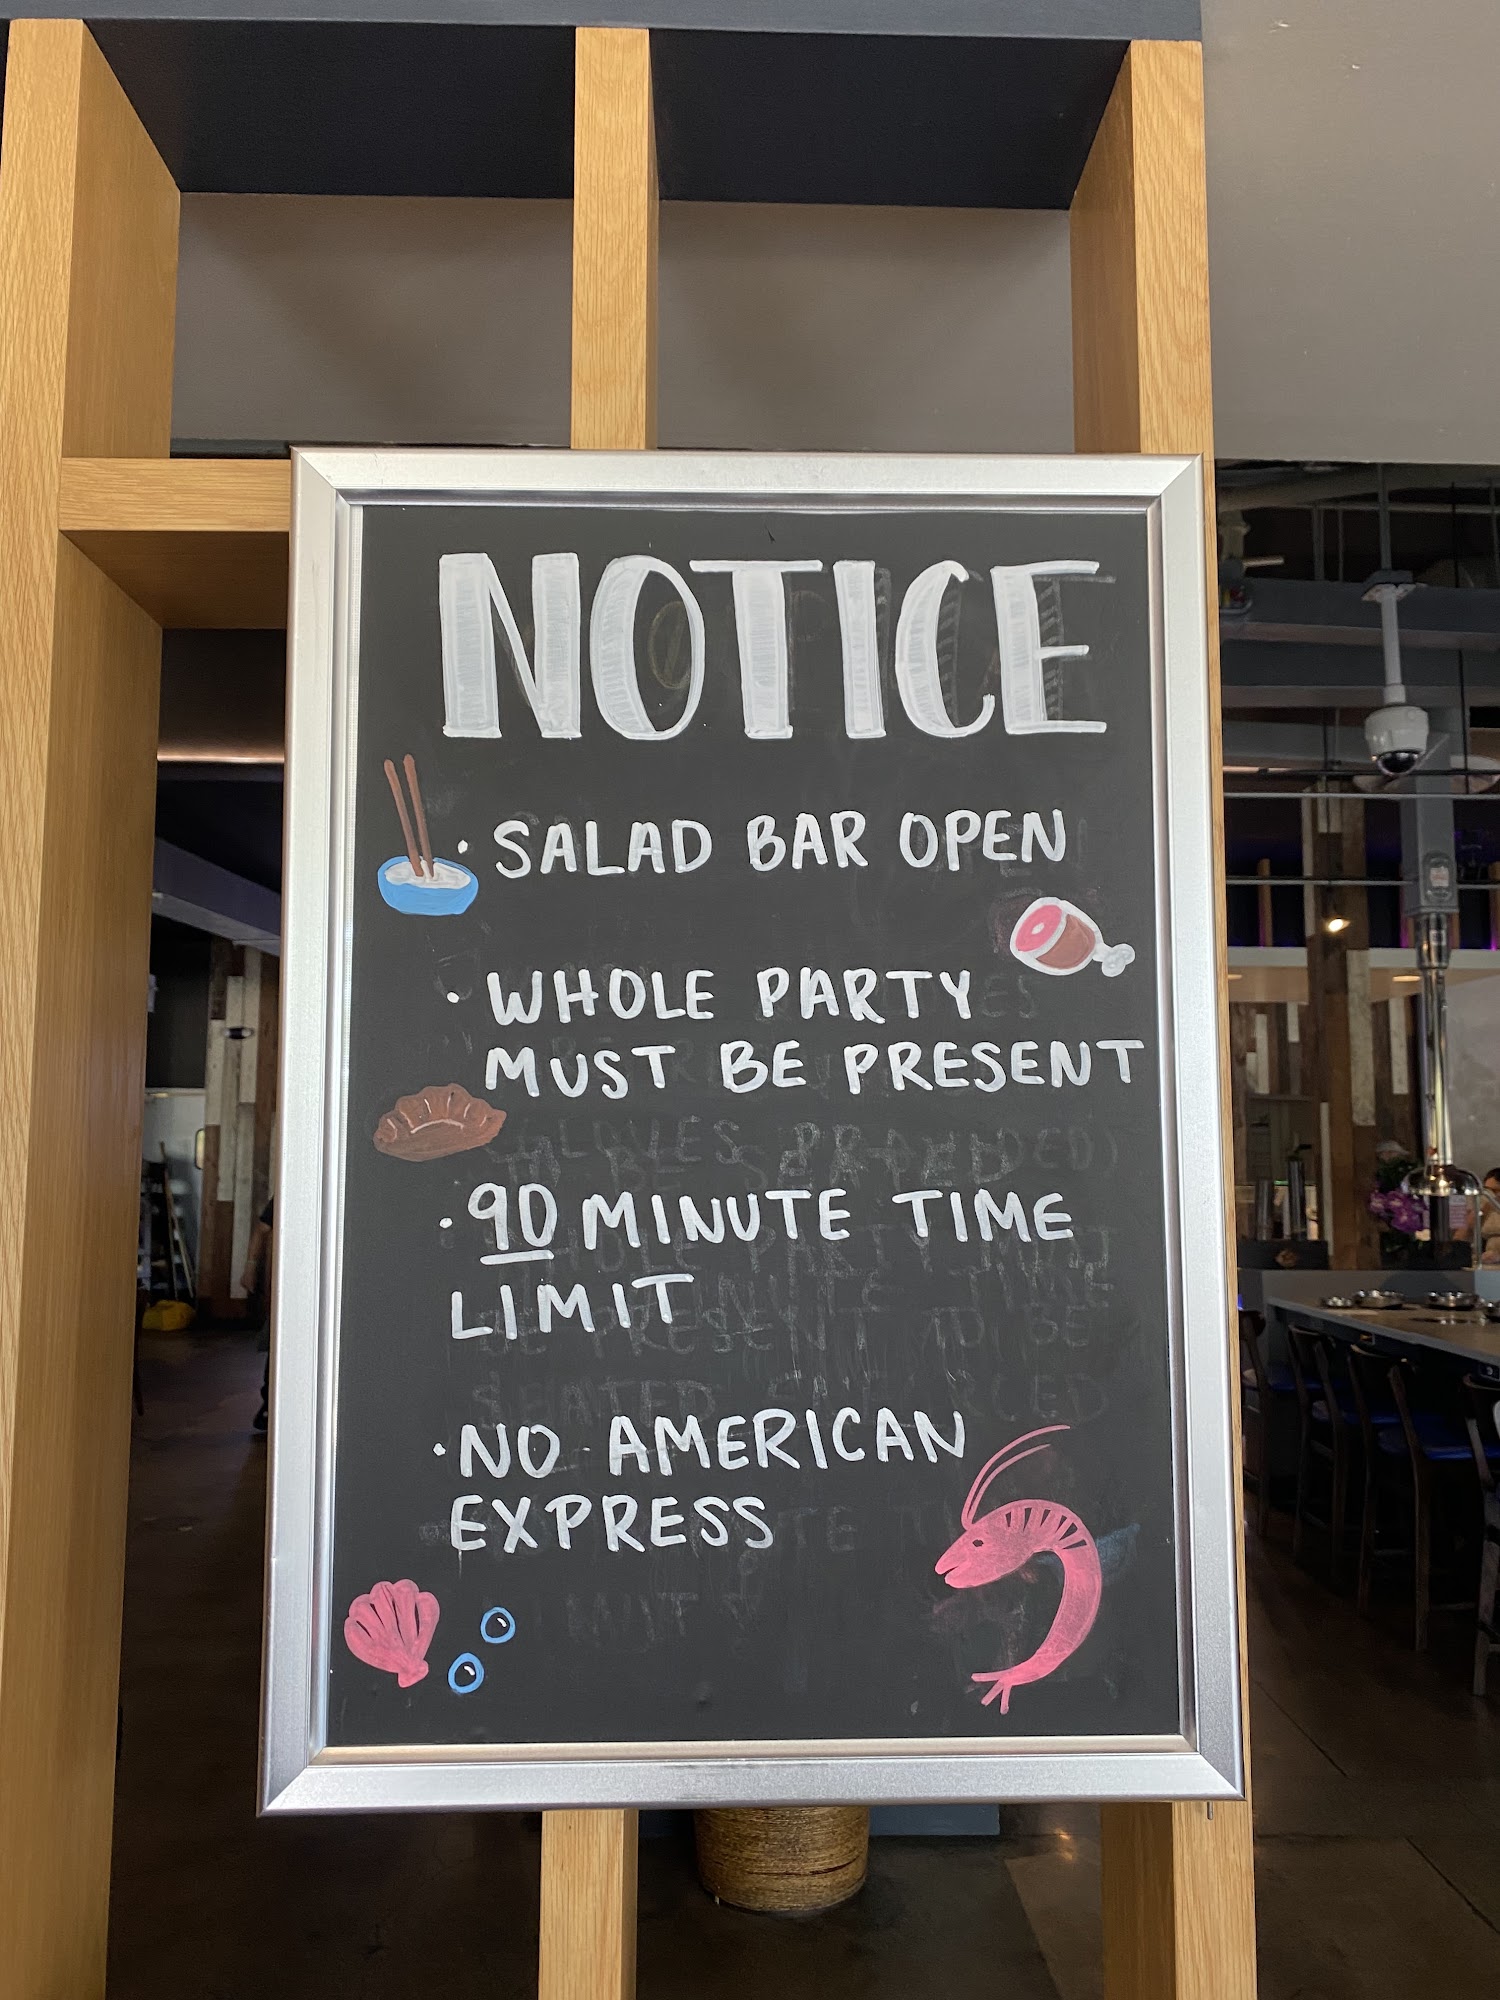 NOTICE
· SALAD BAR OPEN
· WHOLE PARTY
MUST BE PRESENT
· 90 MINUTE TIME
LIMIT
· NO AMERICAN
EXPRESS